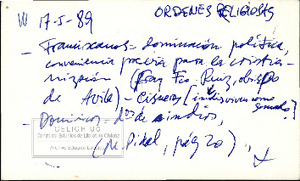 VI 17-I-89 ORDENES RELIGIOSAS
- Franciscanos - dominación política,
conveniencia previa para la cristia-
nización (Fray Fco. Ruiz, obispo
de Avila) - Cisneros
- Dominicos - 
(M. Pidal, pág 20)
CELICH UC